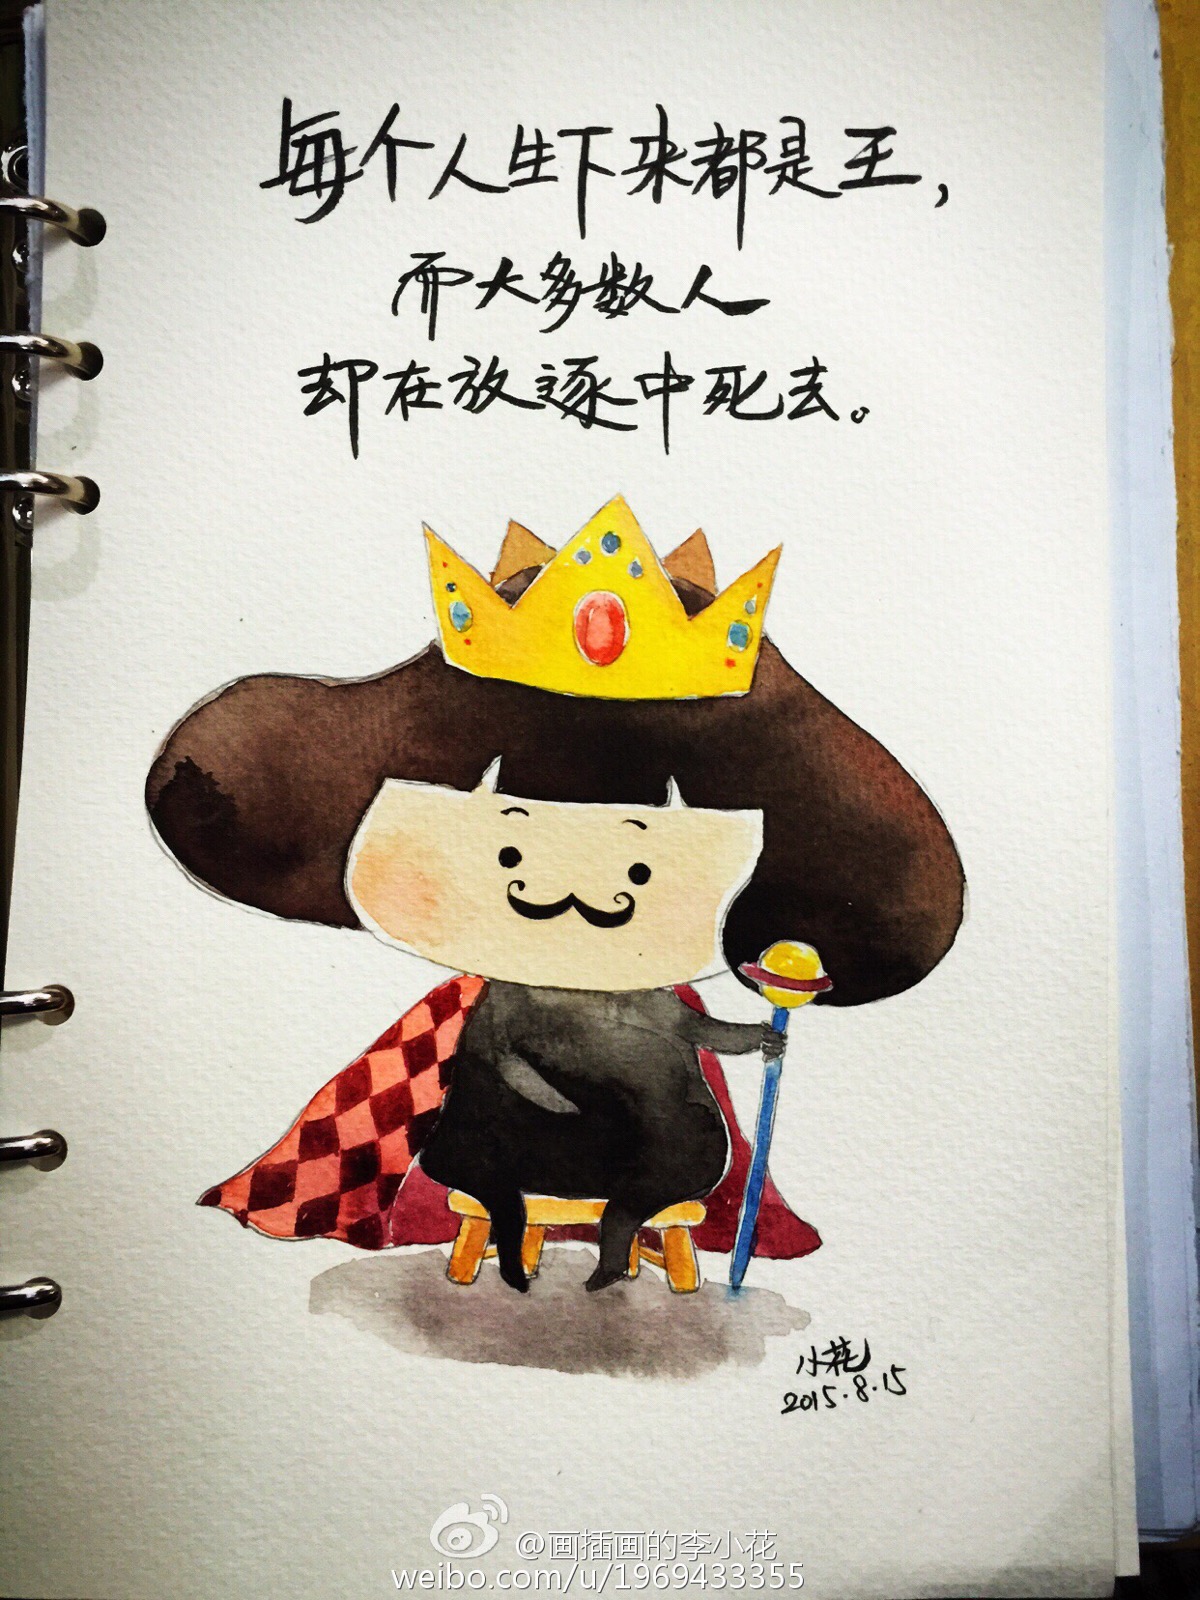 每个人生下来都是王，
而大多数人
却在放逐中死去。
小花
2015.8.15
@画插画的李小花
weibo.com/u/1969433355